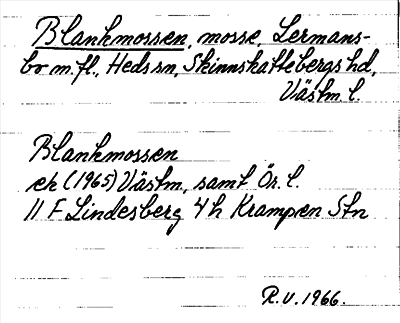 Blankmossen, mosse, Lermans-
bo m.fl., Heds sn, Skinnskattebergs hd,
Västm. l.
Blankmossen
ek (1965) Västm, samt Ör. l.
11 F Lindesberg 4 h Krampen Stn
R.V. 1966.